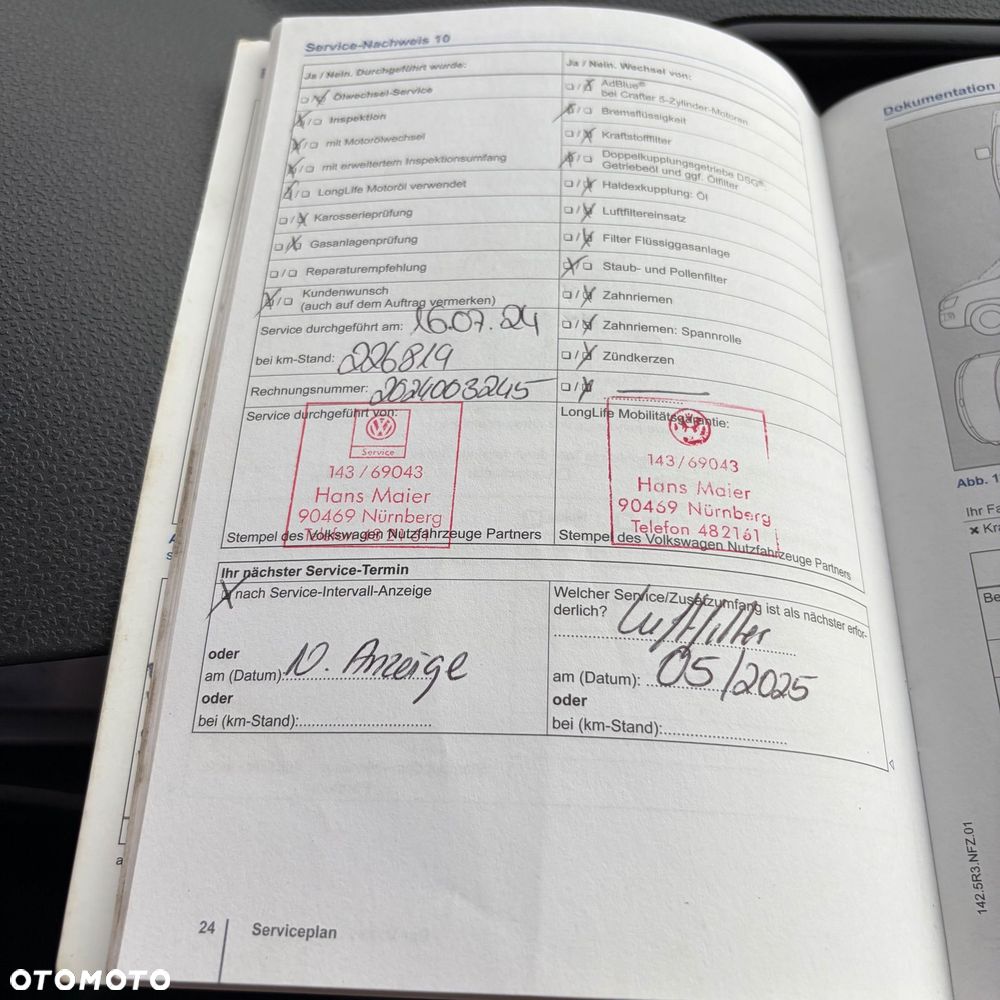 Service-Nachweis 10
Ja / Nein. Durchgeführt wurde:
Ölwechsel-Service
Inspektion
mit Motorölwechsel
mit erweitertem Inspektionsumfang
LongLife Motoröl verwendet
Karosserieprüfung
Gasanlagenprüfung
Reparaturempfehlung
Kundenwunsch
(auch auf dem Auftrag vermerken)
Service durchgeführt am: 16.07.24
bei km-Stand: 226819
Rechnungsnummer: 2024003245
Ja / Nein. Wechsel von:
AdBlue®
bei Crafter 5-Zylinder-Motoren
Bremsflüssigkeit
Kraftstofffilter
Doppelkupplungsgetriebe DSG®:
Getriebeöl und ggf. Ölfilter
Haldexkupplung: Öl
Luftfiltereinsatz
Filter Flüssiggasanlage
Staub- und Pollenfilter
Zahnriemen
Zahnriemen: Spannrolle
Zündkerzen
Service durchgeführt von:
Service
143/69043
Hans Maier
90469 Nürnberg
Stempel des Volkswagen Nutzfahrzeuge Partners
LongLife Mobilitätsgarantie:
143/69043
Hans Maier
90469 Nürnberg
Telefon 482161
Stempel des Volkswagen Nutzfahrzeuge Partners
Ihr nächster Service-Termin
nach Service-Intervall-Anzeige
oder
am (Datum): N. Anzeige
oder
bei (km-Stand):
Welcher Service/Zusatzumfang ist als nächster erfor-
derlich? Luftfilter
am (Datum): 05/2025
oder
bei (km-Stand):
24 Serviceplan
Dokumentation
Abb. 1
Ihr Fa
Kra
Be
142.5R3.NFZ.01
OTOMOTO